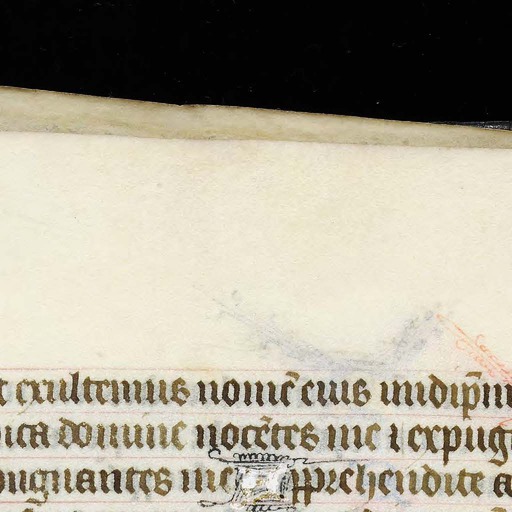 t exultemus nomē eius indip̄m
ica domine nocētes me ⁊ expug
ugnantes me apprehendite a